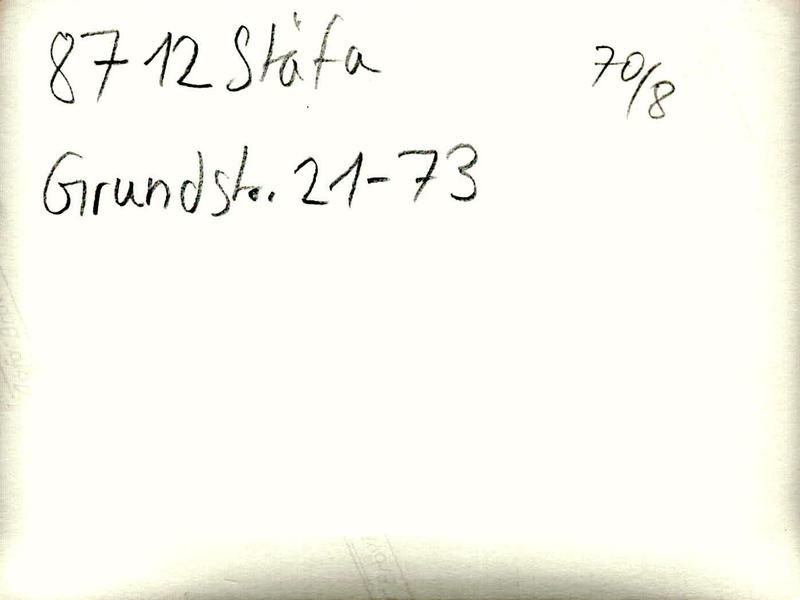 8712 Stäfa 70/8
Grundstr. 21-73